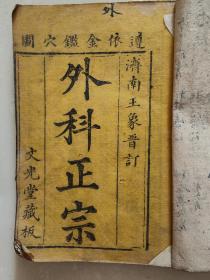 外
遵依金鑑穴圖
濟南王象晉訂
外科正宗
文光堂藏板